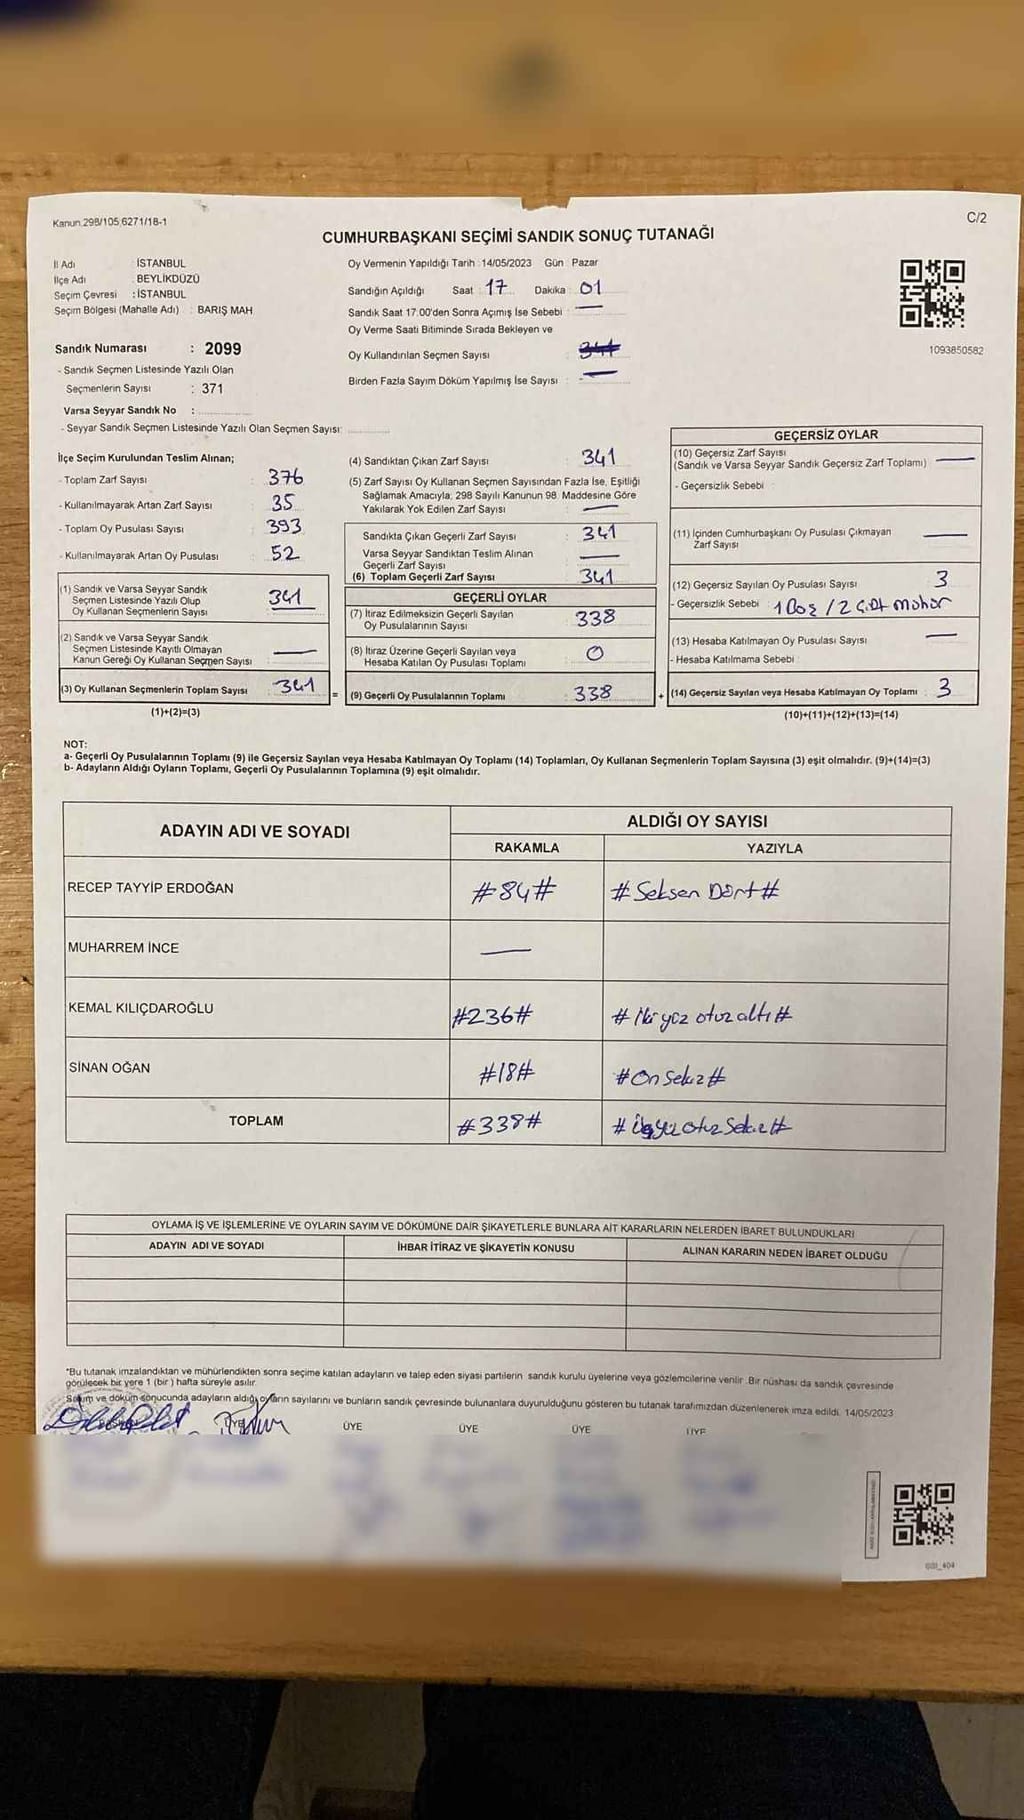 Kanun.298/105,6271/18-1
C/2
CUMHURBAŞKANI SEÇİMİ SANDIK SONUÇ TUTANAĞI
İl Adı : İSTANBUL
İlçe Adı : BEYLİKDÜZÜ
Seçim Çevresi : İSTANBUL
Seçim Bölgesi (Mahalle Adı) : BARIŞ MAH
Sandık Numarası : 2099
- Sandık Seçmen Listesinde Yazılı Olan
Seçmenlerin Sayısı : 371
Varsa Seyyar Sandık No :
- Seyyar Sandık Seçmen Listesinde Yazılı Olan Seçmen Sayısı:
Oy Vermenin Yapıldığı Tarih : 14/05/2023 Gün : Pazar
Sandığın Açıldığı Saat : 17 Dakika : 01
Sandık Saat 17:00'den Sonra Açımış İse Sebebi : —
Oy Verme Saati Bitiminde Sırada Bekleyen ve
Oy Kullandırılan Seçmen Sayısı : 341
Birden Fazla Sayım Döküm Yapılmış İse Sayısı : —
1093850582
İlçe Seçim Kurulundan Teslim Alınan;
- Toplam Zarf Sayısı : 376
- Kullanılmayarak Artan Zarf Sayısı : 35
- Toplam Oy Pusulası Sayısı : 393
- Kullanılmayarak Artan Oy Pusulası : 52
(1) Sandık ve Varsa Seyyar Sandık
Seçmen Listesinde Yazılı Olup
Oy Kullanan Seçmenlerin Sayısı : 341
(2) Sandık ve Varsa Seyyar Sandık
Seçmen Listesinde Kayıtlı Olmayan
Kanun Gereği Oy Kullanan Seçmen Sayısı : —
(3) Oy Kullanan Seçmenlerin Toplam Sayısı : 341
(1)+(2)=(3)
(4) Sandıktan Çıkan Zarf Sayısı : 341
(5) Zarf Sayısı Oy Kullanan Seçmen Sayısından Fazla İse, Eşitliği
Sağlamak Amacıyla; 298 Sayılı Kanunun 98. Maddesine Göre
Yakılarak Yok Edilen Zarf Sayısı : —
Sandıkta Çıkan Geçerli Zarf Sayısı : 341
Varsa Seyyar Sandıktan Teslim Alınan
Geçerli Zarf Sayısı : —
(6) Toplam Geçerli Zarf Sayısı : 341
GEÇERLİ OYLAR
(7) İtiraz Edilmeksizin Geçerli Sayılan
Oy Pusulalarının Sayısı : 338
(8) İtiraz Üzerine Geçerli Sayılan veya
Hesaba Katılan Oy Pusulası Toplamı : 0
= (9) Geçerli Oy Pusulalarının Toplamı : 338
GEÇERSİZ OYLAR
(10) Geçersiz Zarf Sayısı
(Sandık ve Varsa Seyyar Sandık Geçersiz Zarf Toplamı) : —
- Geçersizlik Sebebi :
(11) İçinden Cumhurbaşkanı Oy Pusulası Çıkmayan
Zarf Sayısı : —
(12) Geçersiz Sayılan Oy Pusulası Sayısı : 3
- Geçersizlik Sebebi : 1 Boş / 2 Çift mühür
(13) Hesaba Katılmayan Oy Pusulası Sayısı : —
- Hesaba Katılmama Sebebi :
+ (14) Geçersiz Sayılan veya Hesaba Katılmayan Oy Toplamı : 3
(10)+(11)+(12)+(13)=(14)
NOT:
a- Geçerli Oy Pusulalarının Toplamı (9) ile Geçersiz Sayılan veya Hesaba Katılmayan Oy Toplamı (14) Toplamları, Oy Kullanan Seçmenlerin Toplam Sayısına (3) eşit olmalıdır. (9)+(14)=(3)
b- Adayların Aldığı Oyların Toplamı, Geçerli Oy Pusulalarının Toplamına (9) eşit olmalıdır.
ADAYIN ADI VE SOYADI ALDIĞI OY SAYISI
RAKAMLA YAZIYLA
RECEP TAYYİP ERDOĞAN #84# #Seksen Dört#
MUHARREM İNCE —
KEMAL KILIÇDAROĞLU #236# #İki yüz otuz altı#
SİNAN OĞAN #18# #On Sekiz#
TOPLAM #338# #Üçyüz otuz Sekiz#
OYLAMA İŞ VE İŞLEMLERİNE VE OYLARIN SAYIM VE DÖKÜMÜNE DAİR ŞİKAYETLERLE BUNLARA AİT KARARLARIN NELERDEN İBARET BULUNDUKLARI
ADAYIN ADI VE SOYADI İHBAR İTİRAZ VE ŞİKAYETİN KONUSU ALINAN KARARIN NEDEN İBARET OLDUĞU
*Bu tutanak imzalandıktan ve mühürlendikten sonra seçime katılan adayların ve talep eden siyasi partilerin sandık kurulu üyelerine veya gözlemcilerine verilir. Bir nüshası da sandık çevresinde
görülecek bir yere 1 (bir) hafta süreyle asılır.
Sayım ve döküm sonucunda adayların aldığı oyların sayılarını ve bunların sandık çevresinde bulunanlara duyurulduğunu gösteren bu tutanak tarafımızdan düzenlenerek imza edildi. 14/05/2023
ÜYE ÜYE ÜYE ÜYE ÜYE